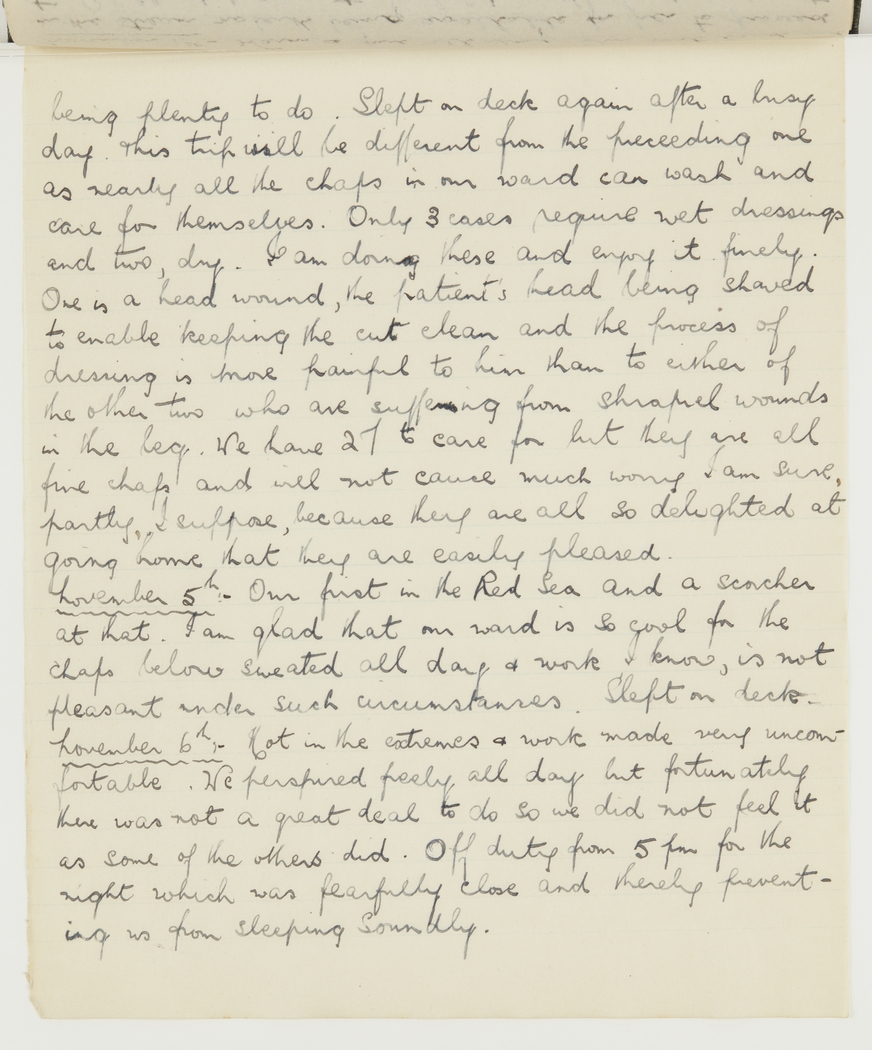 being plenty to do. Slept on deck again after a busy
day. This trip will be different from the preceeding one
as nearly all the chaps in our ward can wash and
care for themselves. Only 3 cases require wet dressings
and two, dry. I am doing these and enjoy it finely.
One is a head wound, the patient's head being shaved
to enable keeping the cut clean and the process of
dressing is more painful to him than to either of
the other two who are suffering from shrapnel wounds
in the leg. We have 27 to care for but they are all
fine chaps and will not cause much worry I am sure,
partly, I suppose, because they are all so delighted at
going home that they are easily pleased.
November 5th:- Our first in the Red Sea and a scorcher
at that. I am glad that our ward is so cool for the
chaps below sweated all day & work I know, is not
pleasant under such circumstances. Slept on deck.
November 6th:- Hot in the extremes & work made very uncom-
fortable. We perspired freely all day but fortunately
there was not a great deal to do so we did not feel it
as some of the others did. Off duty from 5 pm for the
night which was fearfully close and thereby prevent-
ing us from sleeping soundly.